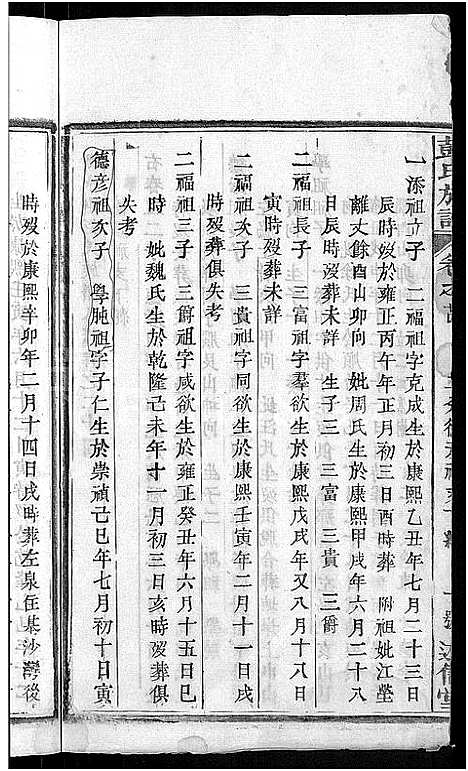 彭氏族譜
一添祖立子 二福祖字克成生於康熙乙丑年七月二十三日
辰時歿於雍正丙午年正月初三日酉時葬 附祖妣江塋
離丈餘酉山卯向 妣周氏生於康熙甲戌年六月二十八
日辰時歿葬未詳 生子三 三富 三貴 三爵
二福祖長子 三富祖字奉欲生於康熙戊戌年又八月十八日
寅時歿葬未詳
二福祖次子 三貴祖字同欲生於康熙壬寅年二月十一日戌
時歿葬俱失考
二福祖三子 三爵祖字咸欲生於雍正癸丑年六月十五日巳
時 妣魏氏生於乾隆己未年十一月初三日亥時歿葬俱
失考
德彦祖次子 學肫祖字子仁生於崇禎己巳年七月初十日寅
時歿於康熙辛卯年二月十四日戌時葬左泉住基沙灣後